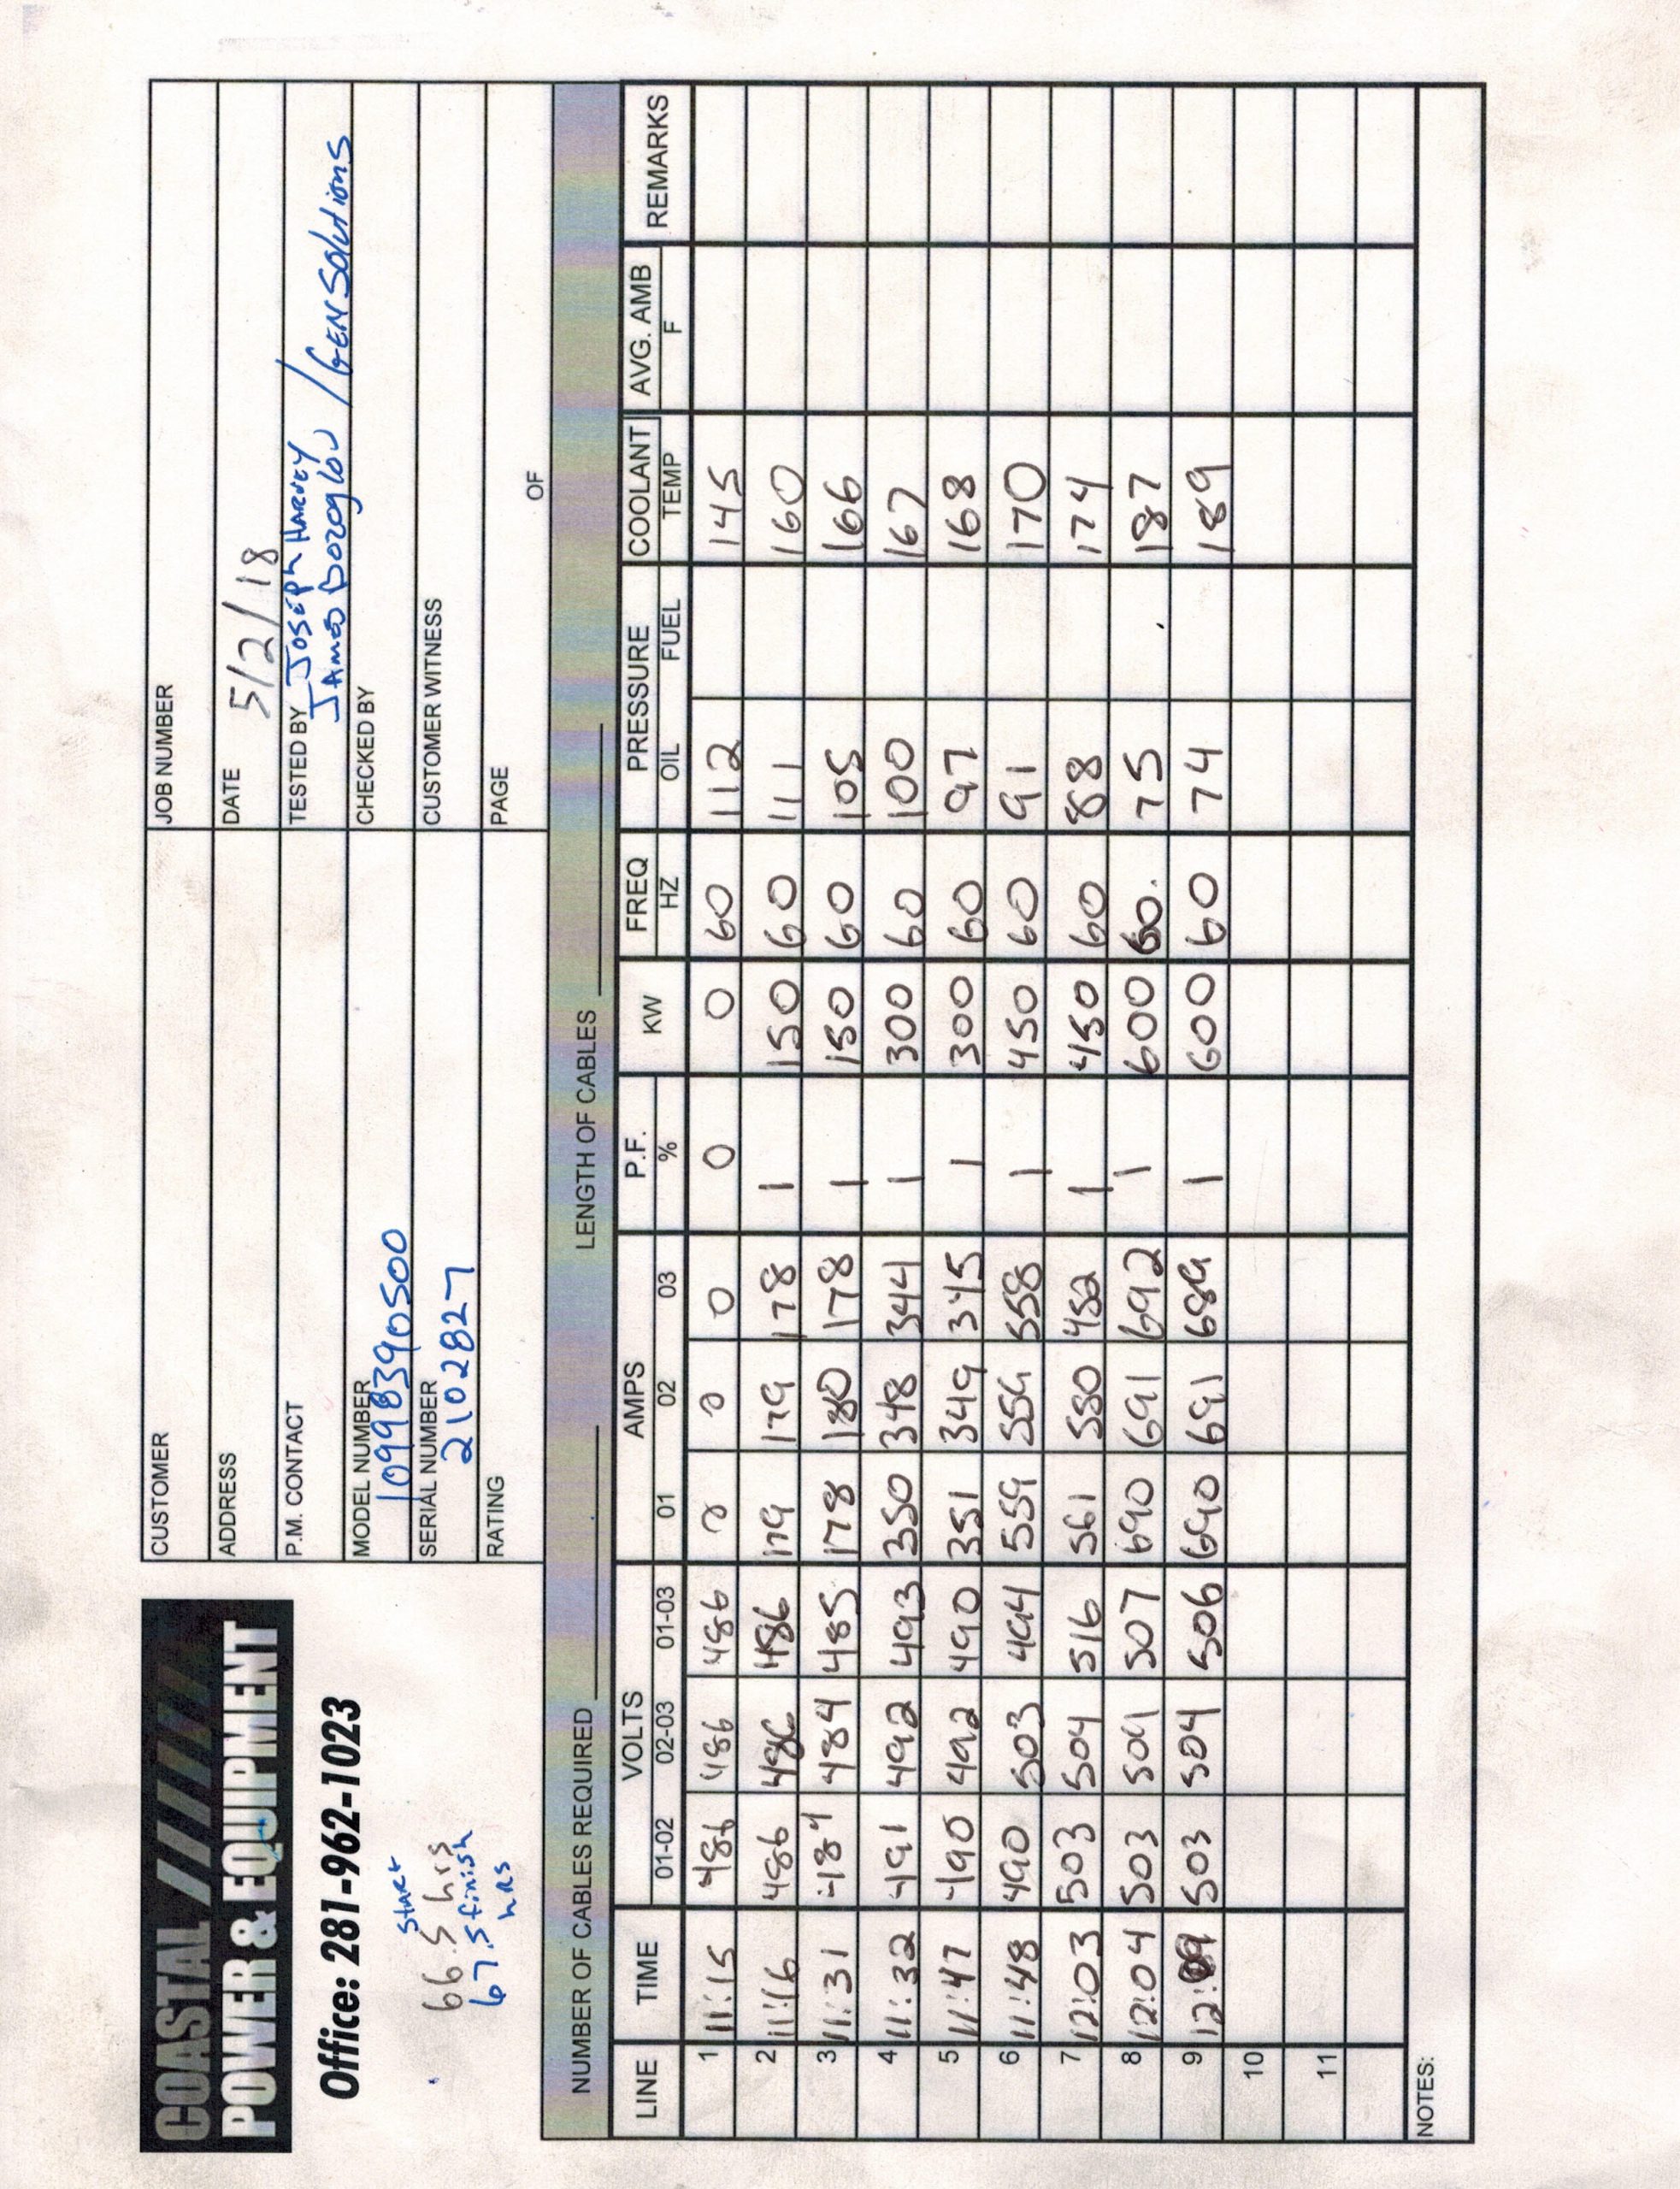 COASTAL
POWER & EQUIPMENT
Office: 281-962-1023
start
66.5 hrs
67.5 finish
hrs
CUSTOMER
JOB NUMBER
ADDRESS
DATE 5/2/18
P.M. CONTACT
TESTED BY JOSEPH HARVEY
/ GEN Solutions
MODEL NUMBER
CHECKED BY
SERIAL NUMBER
2102827
CUSTOMER WITNESS
RATING
PAGE OF
NUMBER OF CABLES REQUIRED LENGTH OF CABLES
LINE TIME VOLTS AMPS P.F. KW FREQ PRESSURE COOLANT AVG. AMB REMARKS
01-02 02-03 01-03 01 02 03 % HZ OIL FUEL TEMP F
1 11:15 486 486 486 0 0 0 0 0 60 112 145
2 11:16 486 486 486 179 179 178 1 150 60 111 160
3 11:31 484 484 485 178 180 178 1 150 60 105 166
4 11:32 491 492 493 350 348 344 1 300 60 100 167
5 11:47 490 492 490 351 349 345 1 300 60 97 168
6 11:48 490 503 494 559 559 558 1 450 60 91 170
7 12:03 503 504 516 561 550 452 1 450 60 88 174
8 12:04 503 509 507 690 691 692 1 600 60. 75 187
9 12:09 503 504 506 690 691 689 1 600 60 74 189
10
11
NOTES: